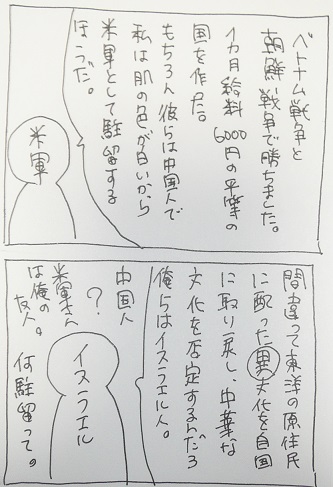 ベトナム戦争と
朝鮮戦争で勝ちました。
1カ月給料6000円の平等の
国を作た。
もちろん彼らは中国人で
私は肌の色が白いから
米軍として駐留する
ほうだ。
米軍
間違って東洋の原住民
に配った異文化を自国
に取り戻し、中華な
文化を否定するんだろ
俺らはイスラエル人。
中国人
？
米軍さん
は俺の
友人。
何駐留って。
イスラエル